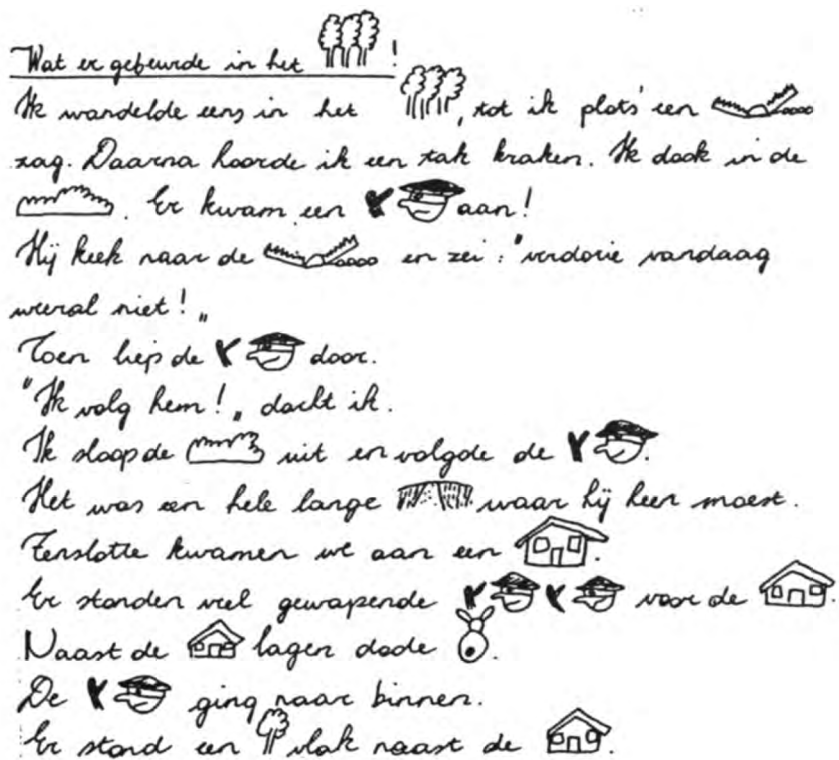 Wat er gebeurde in het !
Ik wandelde eens in het , tot ik plots een
zag. Daarna hoorde ik een tak kraken. Ik dook in de
. Er kwam een aan!
Hij keek naar de en zei: "verdorie vandaag
weeral niet!„
Toen liep de door.
"Ik volg hem!„ dacht ik.
Ik sloop de uit en volgde de .
Het was een hele lange waar hij heen moest.
Tenslotte kwamen we aan een .
Er stonden veel gewapende voor de .
Naast de lagen dode .
De ging naar binnen.
Er stond een vlak naast de .